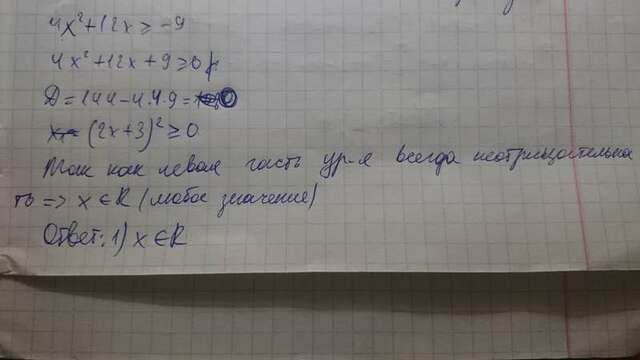 4x²+12x ≥ -9
4x²+12x+9 ≥ 0
D = 144-4.4.9 = 0
(2x+3)² ≥ 0
Так как левая часть ур-я всегда неотрицательна
то => x ∈ R (любое значение)
Ответ: 1) x ∈ R